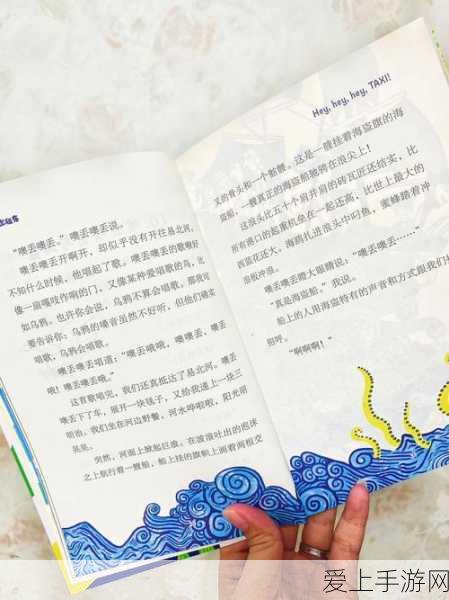 出租车
"噢丢噢丢。"噢丢噢丢说。
噢丢噢丢开啊开，却似乎没有开往易北河，
不知什么时候，他唱起了歌。噢丢噢丢的歌喉好
像一扇嘎吱作响的门，又像某种爱唱歌的鸟，比
如乌鸦。也许你会说，乌鸦不算会唱歌。那我可
要告诉你：乌鸦的嗓音虽然不好听，但他们确实
唱歌，乌鸦会唱歌。
噢丢噢丢唱道："噢丢哦，噢丢，噢丢
哦！噢丢噢丢哦。"
这首歌唱完，我们还真抵达了易北河。噢丢
噢丢下了车，展开一块毯子，又给我递上一块三
明治。我们坐在河边野餐，河水哗啦啦，阳光明
晃晃。
突然，河面上掀起巨浪。在波浪吐出的泡沫
之上航行着一艘船，船上挂的旗帜上画着两根交
Hey, hey, hey, TAXI!
叉的骨头和一个骷髅。这是一艘挂着海盗旗的海
盗船，一艘真正的海盗船驰骋在浪尖上！
这浪头比五十个肩并肩的砖瓦匠还结实，比
所有港口的起重机垒在一起还高，比世上最大的
西蓝花还大。海鸥扎进浪头中叼鱼，蜜蜂踏着冲
浪板冲浪。
噢丢噢丢瞪大眼睛说："噢丢噢丢……"
"真是海盗船。"我说。
船上的人用海盗特有的声音和方式跟我们打
招呼。
"啊啊啊！"
爱上手游网